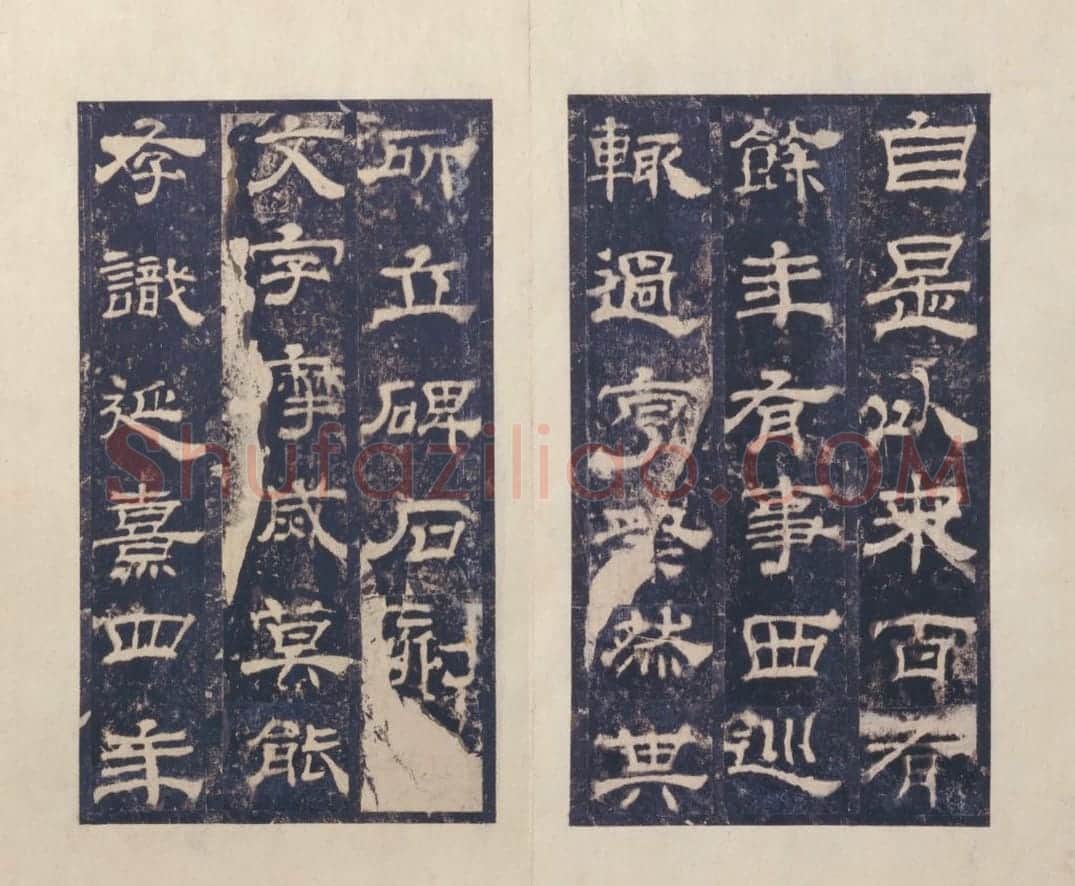 自是以來百有
餘年有事西巡
輒過亨祭然其
所立碑石刻
文字摩滅莫能
存識延熹四年
Shufaziliao.COM